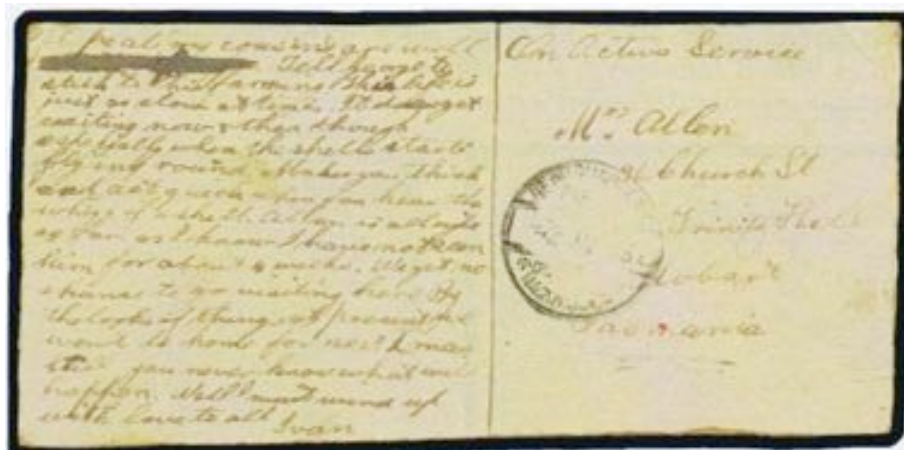 cousins are well
Tell George to
stick to his farming. This life is
just so slow at times. It does get
exciting now & then though
especially when the shells start
flying round. Makes you think
and act quick when you hear the
whizz of a shell. is alright
as far as I know I have not seen
him for about 4 weeks. We get no
chance to go visiting here. By
the looks of things at present we
wont be home for next Xmas
still you never know what will
happen. Well I must wind up
with love to all
Ivan
On Active Service
Mrs Allen
Church St
Trinity
Hobart
Tasmania